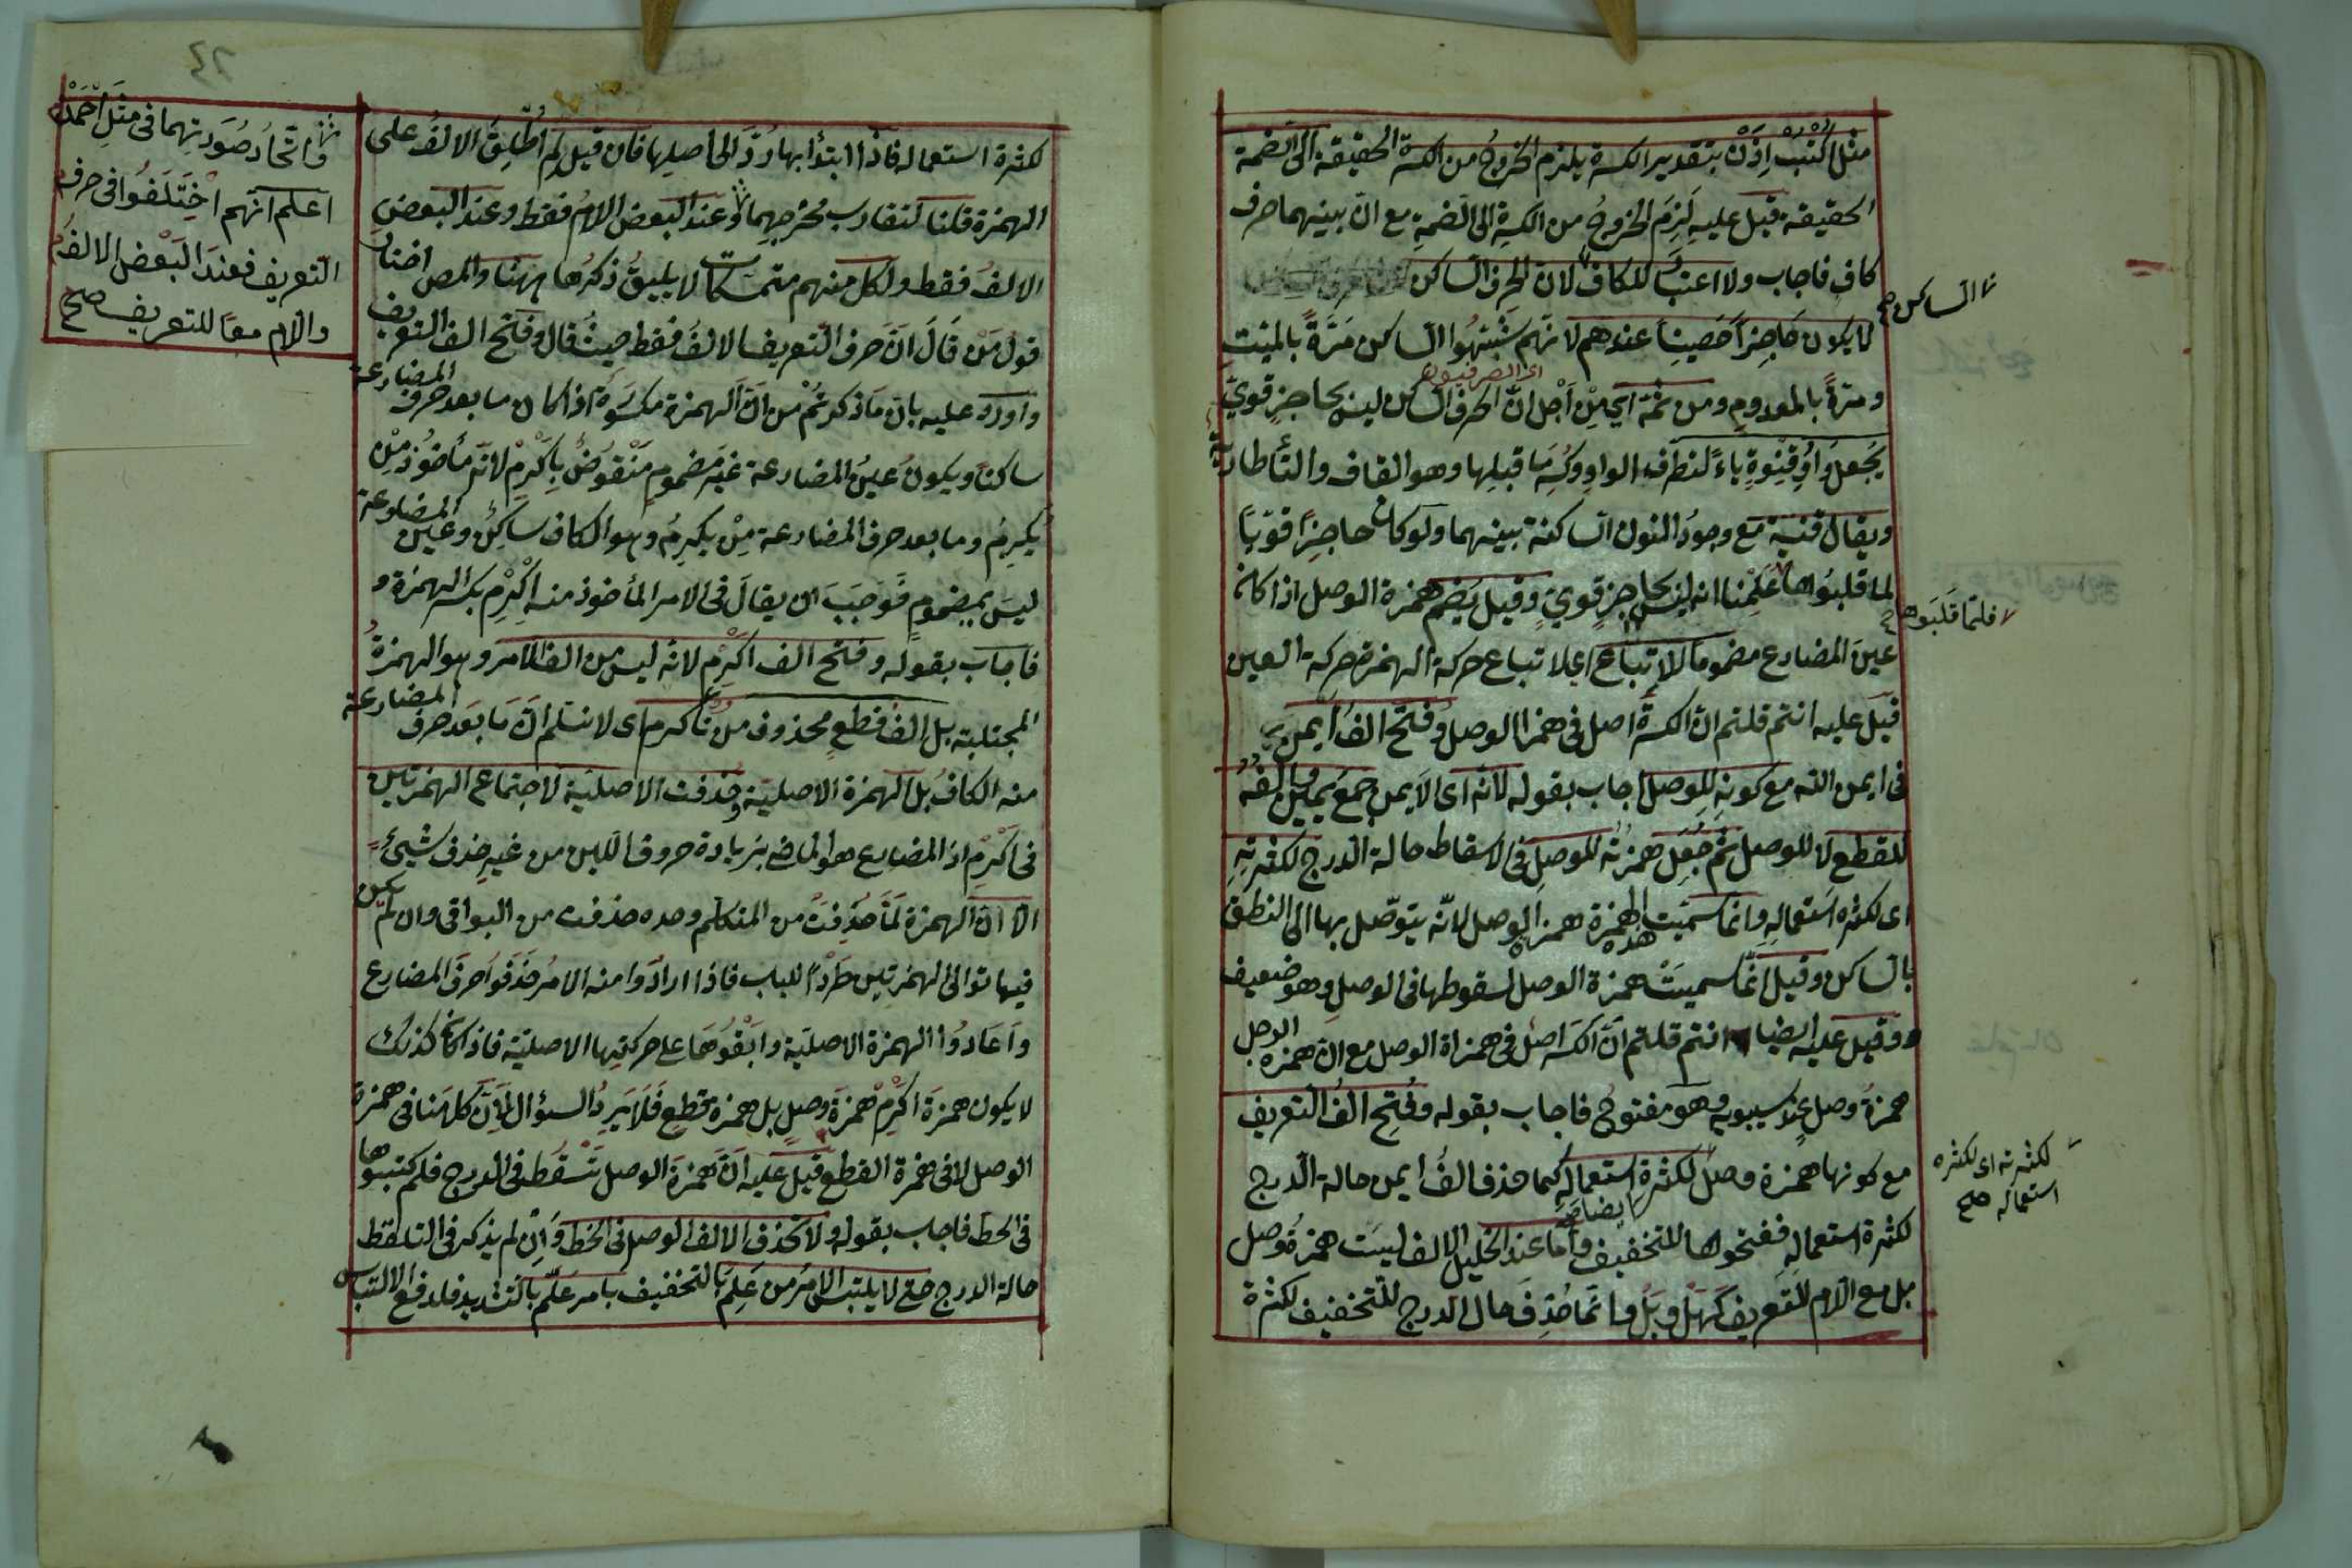 مثل اُكتُب اِذن بتقدير الكسرة يلزم الخروج من الكسرة الحقيقة الى الضمة
الحقيقة قيل عليه لزم الخروج من الكسرة الى الضمة مع ان بينهما حرف
كاف فاجاب ولا اعتبار للكاف لان الحرف الساكن
الساكن صح
لا يكون حاجزا حصينا عندهم لانهم شبّهوا الساكن مرّة بالميت
اى الصرفيون
ومرّة بالمعدوم ومن ثمة اى من اجل ان الحرف الساكن ليس بحاجز قوىّ
يجعل واو قنوة ياء لتطرف الواو وكسر ما قبلها وهو القاف والتاء طارية
ويقال قنية مع وجود النون الساكنة بينهما ولو كان حاجزا قويّا
لما قلبوها علمنا انه ليس بحاجز قوىّ وقيل يضم همزة الوصل اذا كان
فلمّا قلبوها صح
عين المضارع مضموما للاتباع اى لاتباع حركة الهمزة حركة العين
قيل عليه انتم قلتم ان الكسرة اصل فى همزا الوصل وفتح الف ايمن
فى ايمن الله مع كونه للوصل اجاب بقوله لانه اى الايمن جمع يمين والفه
للقطع لا للوصل ثم جعل همزته للوصل فى الاسقاط حالة الدرج لكثرته
اى لكثره استعماله وانما سميت هذه الهمزة همزة الوصل لانه يتوصّل بها الى النطق
بالساكن وقيل انّما سميت همزة الوصل لسقوطها فى الوصل وهو ضعيف
وقيل عليه ايضا انتم قلتم ان الكسر اصل فى همزاة الوصل مع ان همزه الوصل
همزة وصل عند سيبويه وهو مفتوح فاجاب بقوله وفتح الف التعريف
مع كونها همزة وصل لكثرة استعماله كما حذف الف ايمن حالة الدرج
لكثرته اى لكثره
استعماله صح
ايضا صح
لكثرة استعماله ففتحوها للتخفيف وامّا عند الخليل الالف ليست همزة وصل
بل مع اللام للتعريف كهل وبل وانّما حذف حال الدرج للتخفيف لكثرة
٢٤
لكثرة استعماله فاذا ابتدأ بها ردّ الى اصلها فان قيل لم اُطلق الالف على
الهمزة قلنا لتقارب مخرجهما وعند البعض اللام فقط وعند البعض
الالف فقط ولكل منهم متمسكات لا يليق ذكرها ههنا والمص اختار
قول من قال ان حرف التعريف الالف فقط حيث قال وفتح الف التعريف
واورد عليه بان ما ذكرتم من ان الهمزة مكسورة اذا كان ما بعد حرف المضارعة
ساكنا ويكون عين المضارعة غير مضموم منقوض باكرم لانه مأخوذ من
يكرم وما بعد حرف المضارعة من يكرم وهو الكاف ساكن وعين المضارعة
ليس بمضموم فوجب ان يقال فى الامر المأخوذ منه اكرم بكسر الهمزة و
فاجاب بقوله وفتح الف اكرم لانه ليس من الف الامر وهو الهمزة
المجتلبة بل الف قطع محذوف من تأكرم اى لا نسلم ان ما بعد حرف المضارعة
منه الكاف بل الهمزة الاصلية وحذفت الاصلية لاجتماع الهمزتين
فى اكرم اذ المضارع هو الماضى بزيادة حروف اللين من غير حذف شيئ
الا ان الهمزة لمّا حذفت من المتكلم وحده حذفت من البواقى وان لم يكن
فيها توالى الهمزتين طردا للباب فاذا ارادوا منه الامر حذفوا حرف المضارع
واعادوا الهمزة الاصلية وابقوها على حركتها الاصلية فاذا كان كذلك
لا يكون همزة اكرم همزة وصل بل همزة قطع فلا يرد السؤال لان كلامنا فى همزة
الوصل لا فى همزة القطع قيل عليه ان همزة الوصل تسقط فى الدرج فلم كتبوها
فى الخط فاجاب بقوله ولا تحذف الالف الوصل فى الخط وان لم يذكر فى التلفظ
حالة الدرج حتى لا يلتبس الامر من علم بالتخفيف بامر علّم بالتشديد فلدفع الالتباس
واتحاد صورتهما فى مثل احمد
اعلم انهم اختلفوا فى حرف
التعريف فعند البعض الالف
واللام معا للتعريف صح